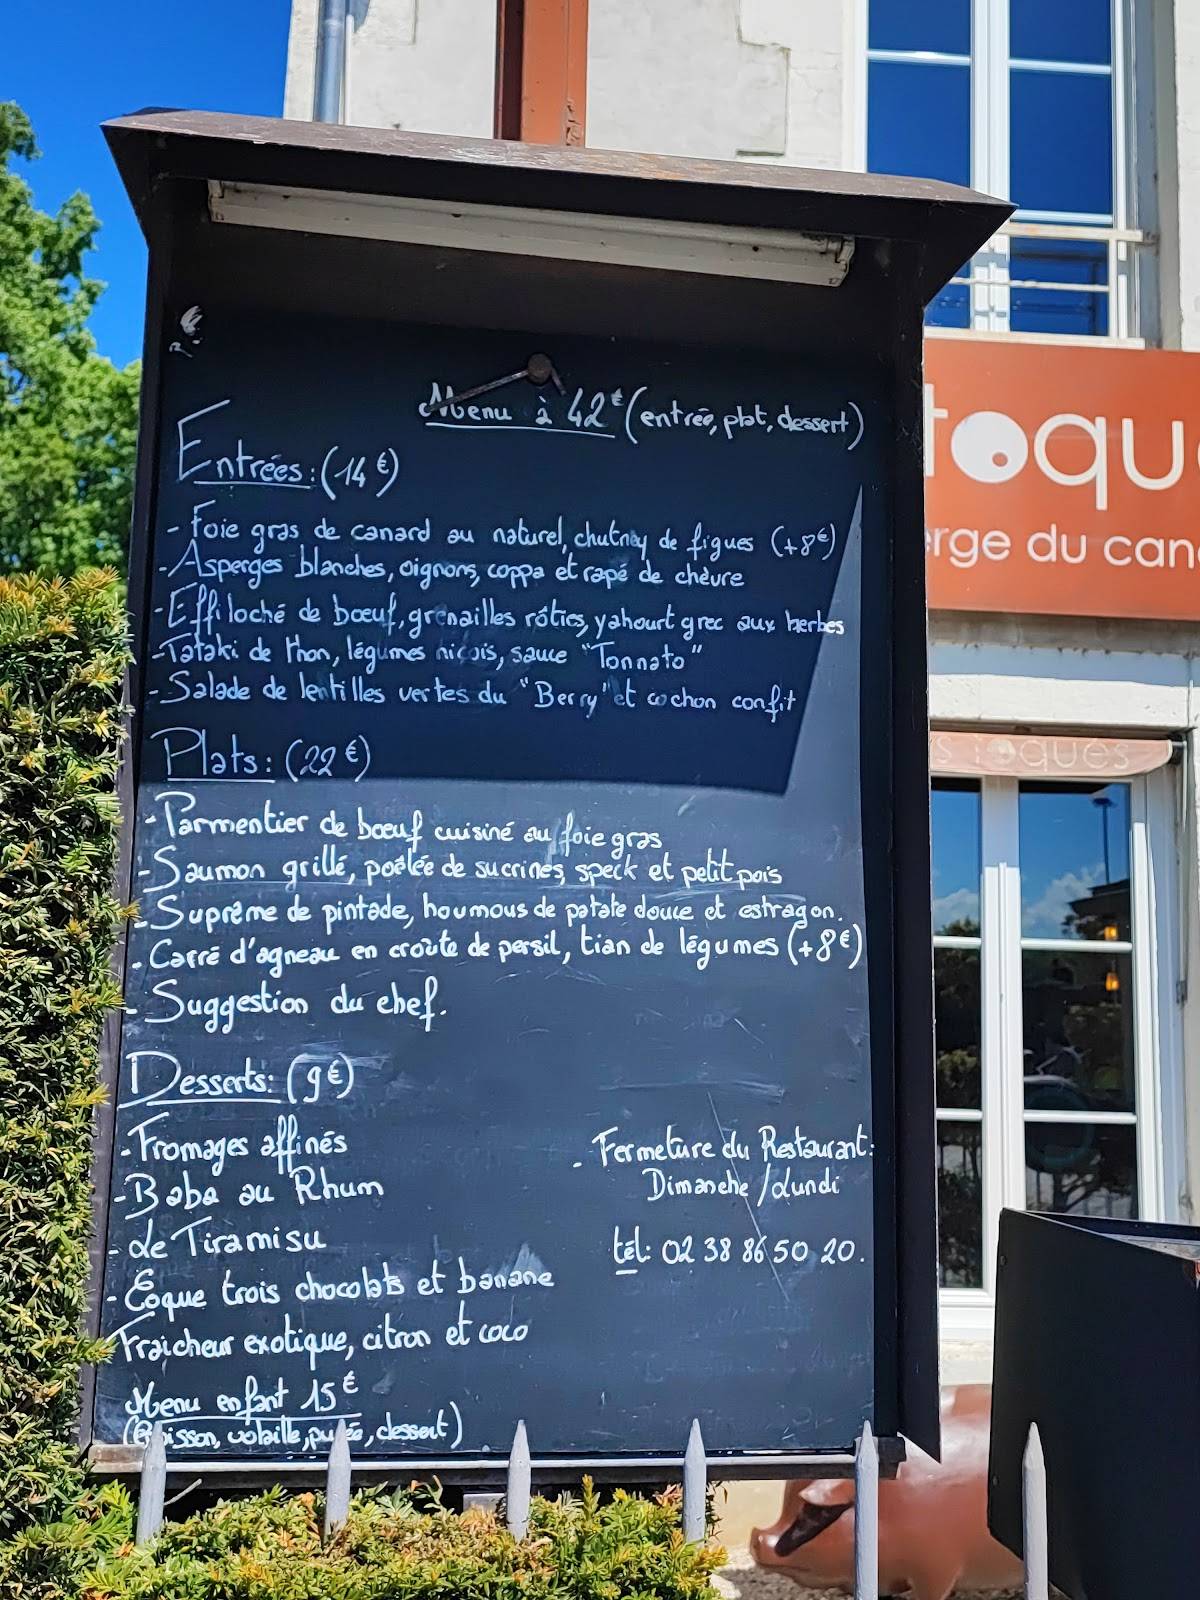 Menu à 42€ (entrée, plat, dessert)
Entrées : (14€)
- Foie gras de canard au naturel, chutney de figues (+8€)
- Asperges blanches, oignons, coppa et rapé de chèvre
- Effiloché de bœuf, grenailles rôties, yahourt grec aux herbes
- Tataki de thon, légumes niçois, sauce "Tonnato"
- Salade de lentilles vertes du "Berry" et cochon confit
Plats : (22€)
- Parmentier de bœuf cuisiné au foie gras
- Saumon grillé, poêlée de sucrines, speck et petit pois
- Suprême de pintade, houmous de patate douce et estragon.
- Carré d'agneau en croûte de persil, tian de légumes (+8€)
- Suggestion du chef.
Desserts : (9€)
- Fromages affinés
- Baba au Rhum
- Le Tiramisu
- Coque trois chocolats et banane
Fraicheur exotique, citron et coco
Menu enfant 15€
(Boisson, volaille, purée, dessert)
- Fermeture du Restaurant :
Dimanche / Lundi
tél : 02 38 86 50 20.
toqu
rge du can
s toques